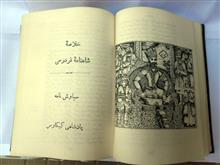 خلاصهٔ
شاهنامهٔ فردوسی
سیاوش نامه
پادشاهی کیکاوس